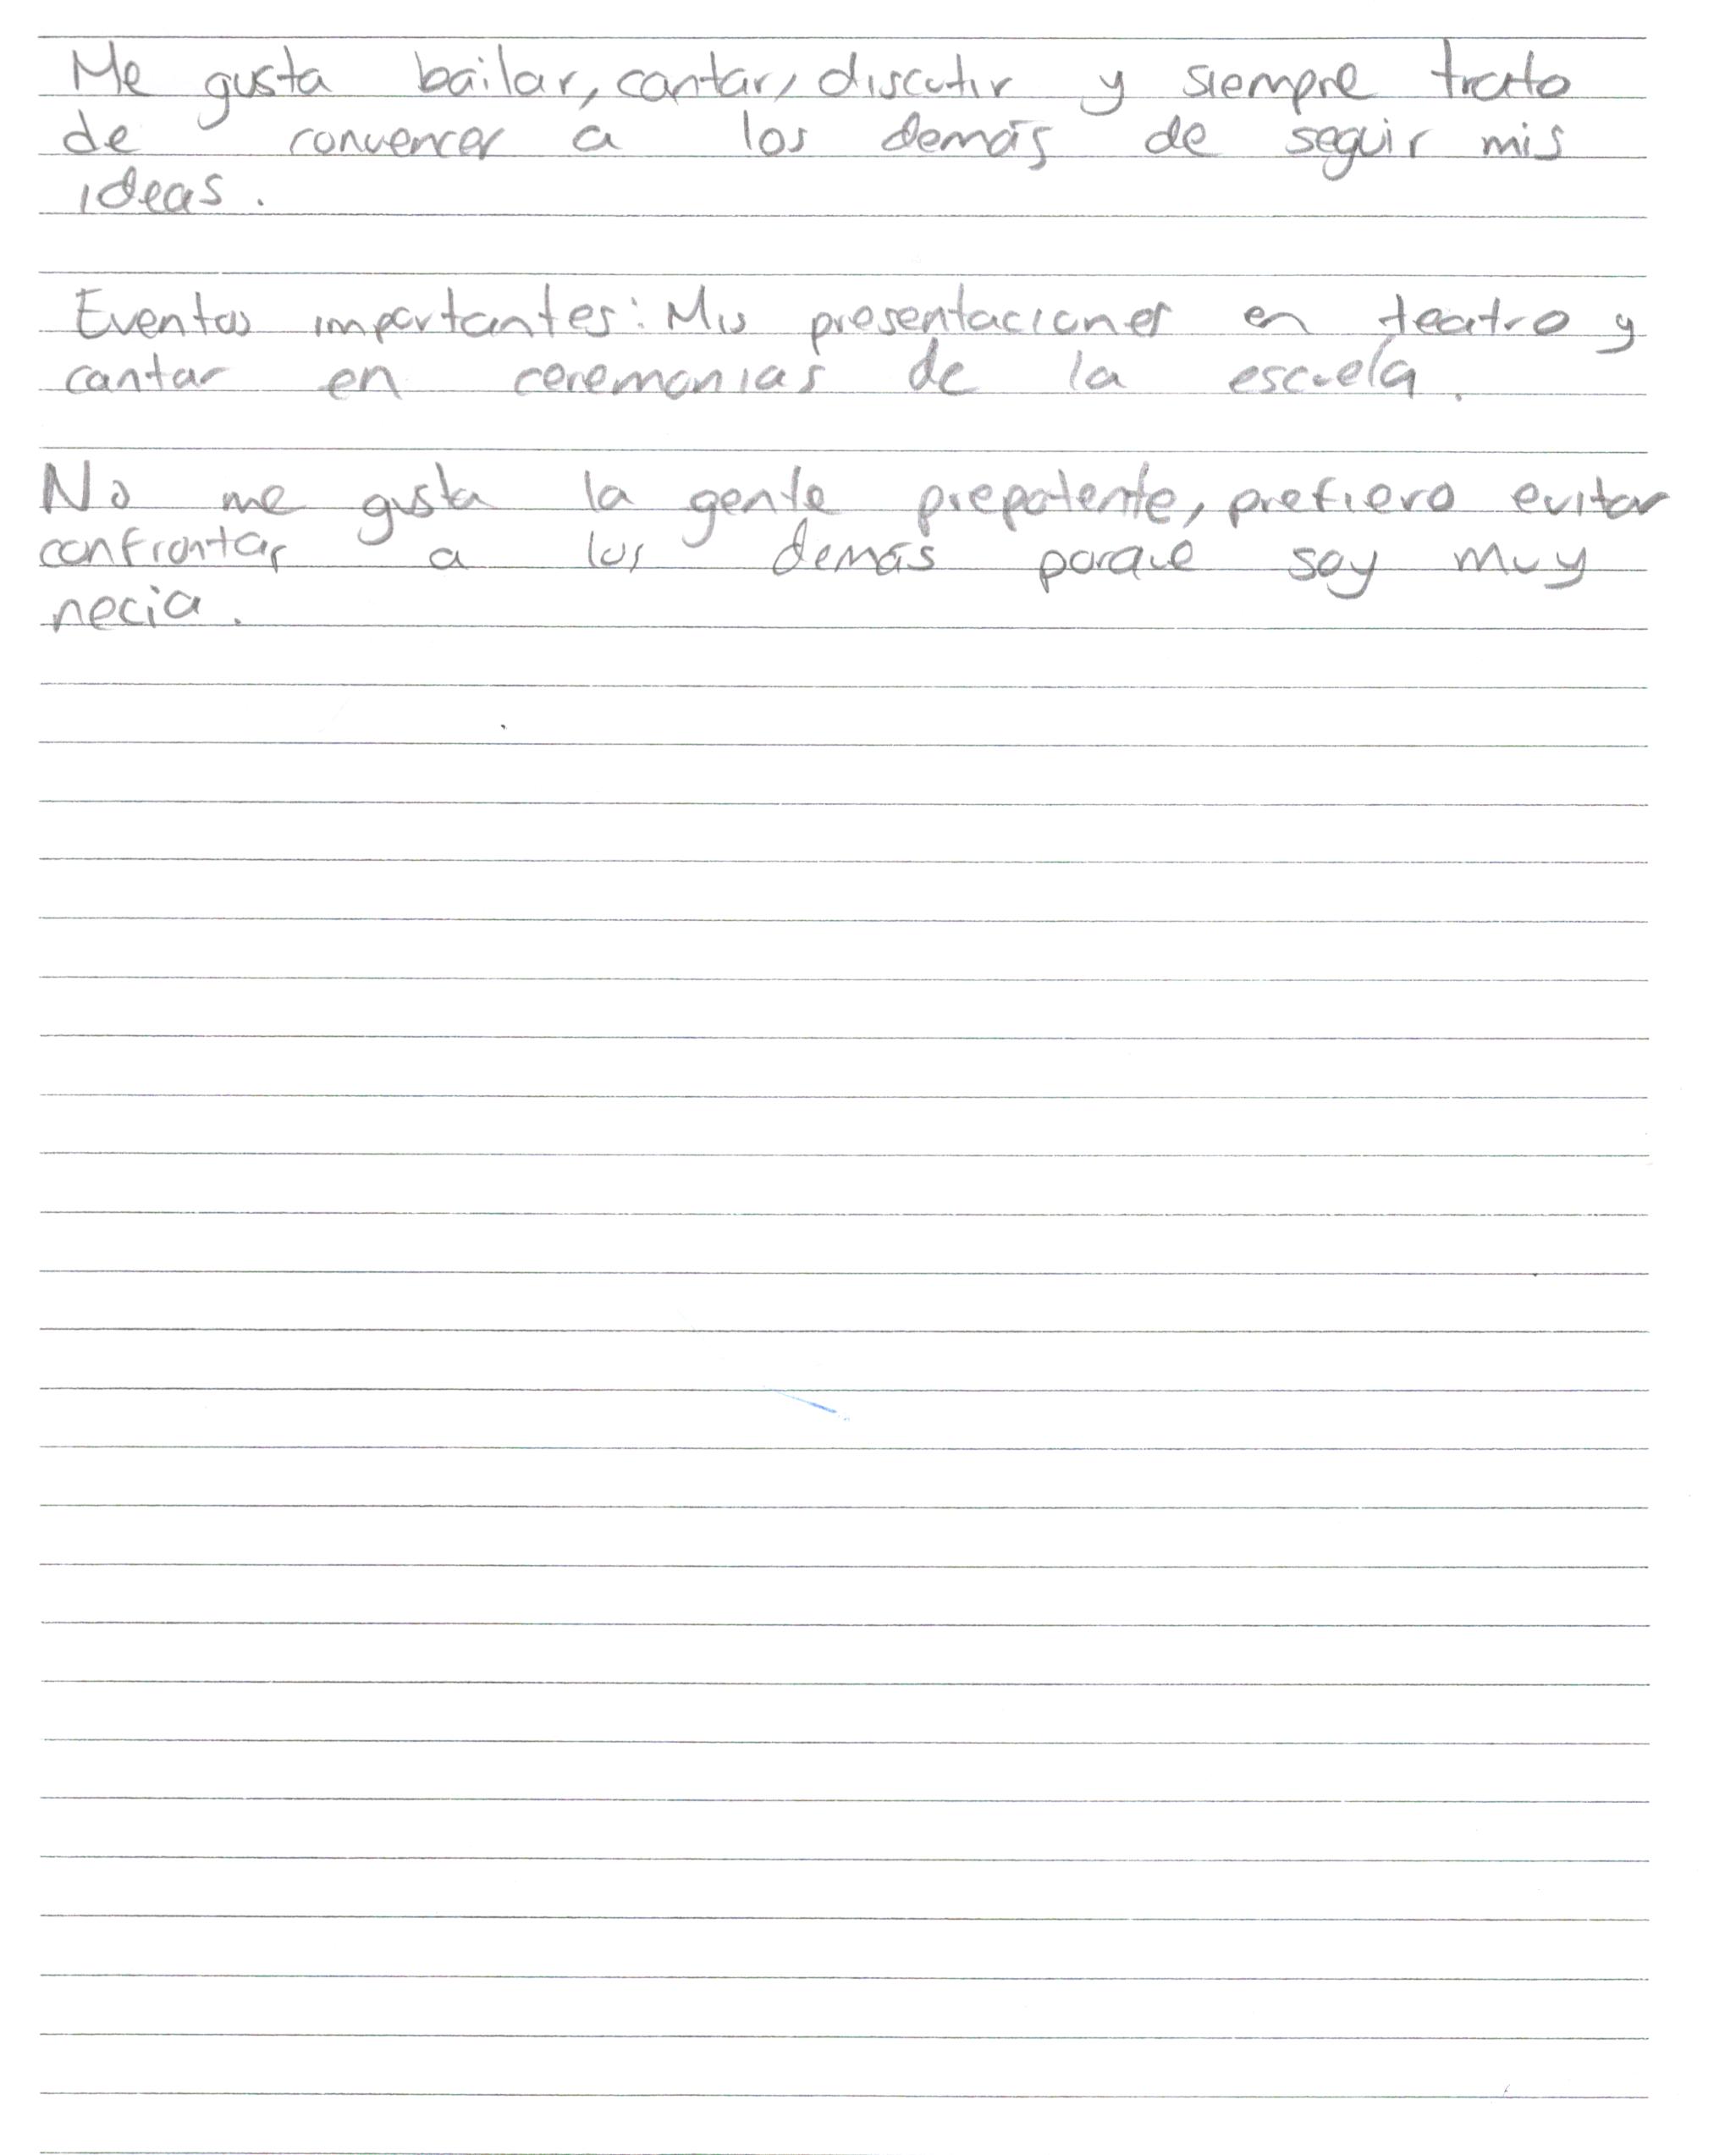 Me gusta bailar, cantar, discutir y siempre trato
de convencer a los demás de seguir mis
ideas.
Eventos importantes: Mis presentaciones en teatro y
cantar en ceremonias de la escuela.
No me gusta la gente prepotente, prefiero evitar
confrontar a los demás porque soy muy
necia.